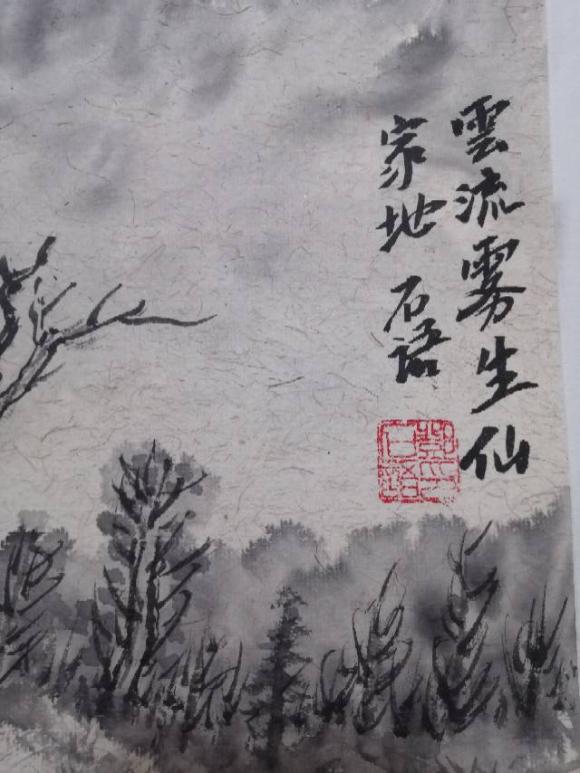 雲流雾生仙
家地 石語